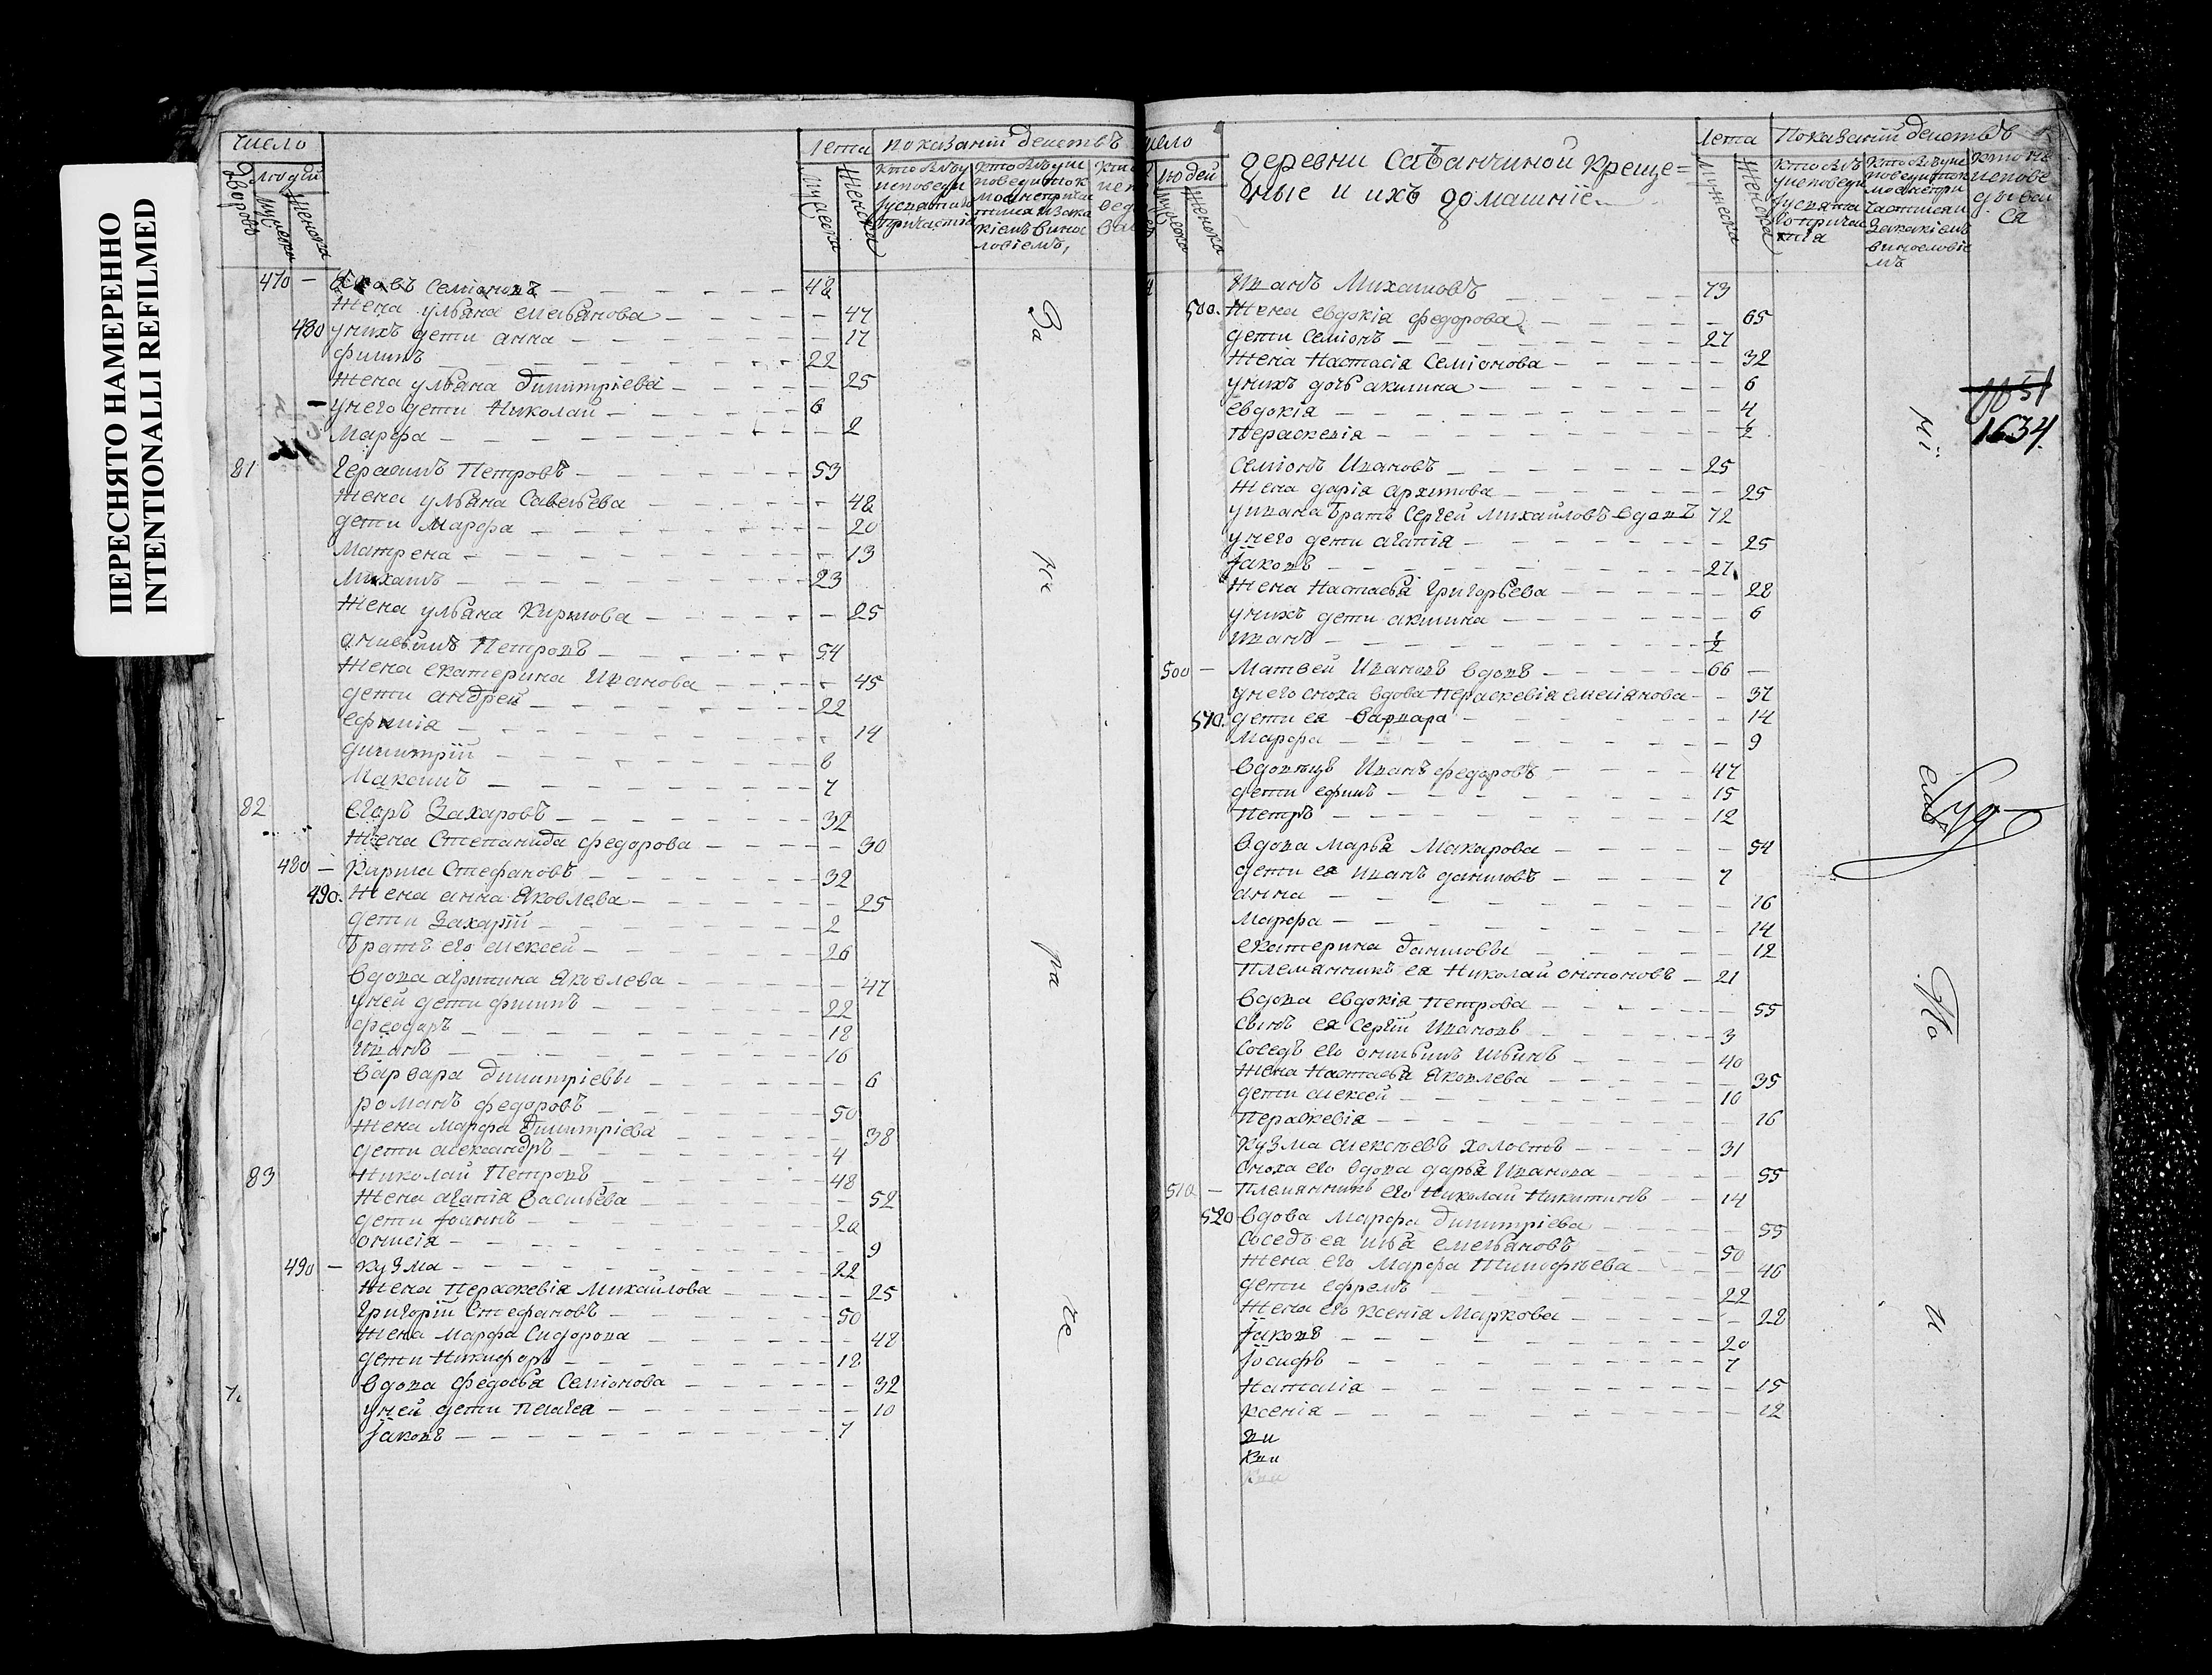 ПЕРЕСНЯТО НАМЕРЕННО
INTENTIONALLI REFILMED
число
Дворовъ
людей
мужеска
женска
лета
мужеска
женска
показаній действъ
470 — Семіоновъ 48
жена ульяна емельянова 47
480 унихъ дети анна 17
филипъ 22
жена ульяна димитріева 25
унего дети Николай 6
Марфа 2
81 Герасимъ Петровъ 53
жена ульяна Савельева 48
дети Марфа 20
Матрена 13
Михаилъ 23
жена ульяна Кирилова 25
анисимъ Петровъ 54
жена екатерина Иванова 45
дети андрей 22
14
димитрій 6
Максимъ 7
82 егоръ Захаровъ 32
жена Степанида федорова 30
480 — Кирила Стефановъ 32
490. жена анна Яковлева 25
дети Захарій 2
братъ его алексей 26
вдова агрипина Яковлева 47
уней дети филипъ 22
феодоръ 18
Иванъ 16
варвара димитріевы 6
романъ федоровъ 50
жена марфа димитріева 38
дети александръ 4
83 Николай Петровъ 48
жена агапія васильева 52
дети Іоаннъ 20
онисія 9
490 — кузма 22
жена Пераскевія Михайлова 25
Григорій Стефановъ 50
жена Марфа Сидорова 48
дети Никифоръ 12
вдова федосья Семіонова 32
уней дети Пелагея 10
Іаковъ 7
За
ни
ра
че
деревни Сабанчиной креще=
ные и ихъ домашніе
людей
мужеска
женска
лета
мужеска
женска
Показаній действъ
Иванъ Михаиловъ 73
500. жена евдокія федорова 65
дети Семіонъ 27
жена Настасія Семіонова 32
унихъ дочь акилина 6
евдокія 4
Пераскевія ½
Семіонъ Ивановъ 25
жена дарія архипова 25
уивана братъ Сергей Михайловъ вдовъ 72
унего дети агапія 25
Іаковъ 27
жена Настасья Григорьева 28
унихъ дети акилина 6
иванъ ½
500 — Матвей Ивановъ вдовъ 66
унего сноха вдова Пераскевія емеліянова 37
510. дети ея варвара 14
Марфа 9
вдовецъ Иванъ федоровъ 47
дети ефимъ 15
Петръ 12
вдова Марья Макарова 54
дети ея иванъ даниловъ 7
анна 16
Марфа 14
екатерина даниловы 12
племянникъ ея Николай антоновъ 21
вдова евдокія петрова 55
сынъ ея Сергій Ивановъ 3
соседъ его Ильинъ 40
жена Настасья Яковлева 35
дети алексей 10
Пераскевія 16
кузма алексеевъ холостъ 31
сноха его вдова дарья Иванова 55
510 — племянникъ его Николай Никитинъ 14
520 вдова Марфа димитріева 55
соседъ ея илья емельяновъ 50
жена его Марфа Тимофеева 46
дети ефремъ 22
жена его ксенія Маркова 28
Іаковъ 20
Іосифъ 7
Наталія 15
ксенія 12
1634.